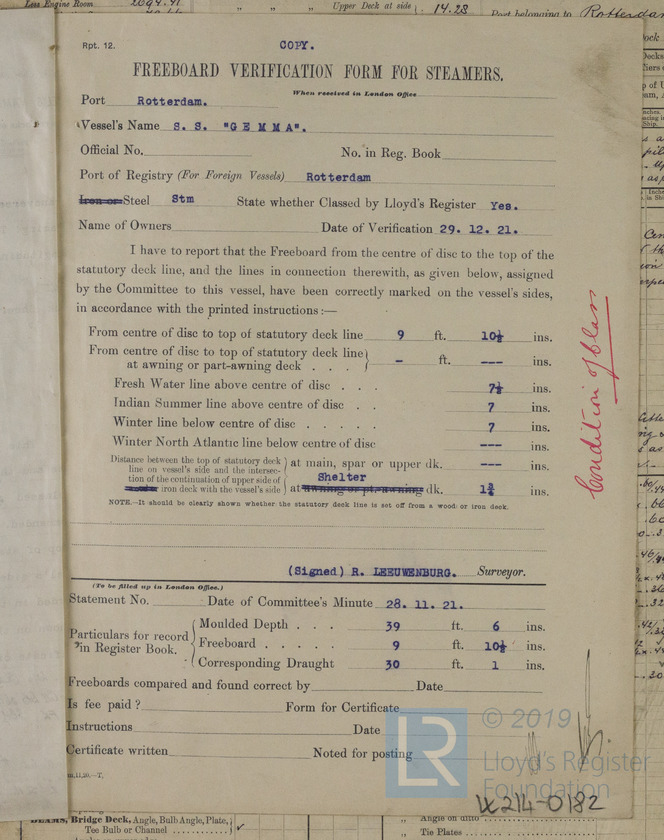 Less Engine Room 2094.41 " " " Upper Deck at side 14.28 Port belonging to Rotterdam
Rpt. 12.
COPY.
FREEBOARD VERIFICATION FORM FOR STEAMERS.
When received in London Office
Port Rotterdam.
Vessel's Name S. S. "GEMMA".
Official No. No. in Reg. Book
Port of Registry (For Foreign Vessels) Rotterdam
Iron or Steel Stm State whether Classed by Lloyd's Register Yes.
Name of Owners Date of Verification 29. 12. 21.
I have to report that the Freeboard from the centre of disc to the top of the
statutory deck line, and the lines in connection therewith, as given below, assigned
by the Committee to this vessel, have been correctly marked on the vessel's sides,
in accordance with the printed instructions :—
From centre of disc to top of statutory deck line 9 ft. 10½ ins.
From centre of disc to top of statutory deck line
at awning or part-awning deck . . . – ft. --- ins.
Fresh Water line above centre of disc . . . 7½ ins.
Indian Summer line above centre of disc . . 7 ins.
Winter line below centre of disc . . . . . 7 ins.
Winter North Atlantic line below centre of disc --- ins.
Distance between the top of statutory deck
line on vessel's side and the intersec-
tion of the continuation of upper side of
iron deck with the vessel's side
at main, spar or upper dk. --- ins.
Shelter
at awning or pt.-awning dk. 1¾ ins.
NOTE.—It should be clearly shown whether the statutory deck line is set off from a wood or iron deck.
Condition of Class
(Signed) R. LEEUWENBURG. Surveyor.
(To be filled up in London Office.)
Statement No. Date of Committee's Minute 28. 11. 21.
Particulars for record
in Register Book.
Moulded Depth . . . 39 ft. 6 ins.
Freeboard . . . . . 9 ft. 10½ ins.
Corresponding Draught 30 ft. 1 ins.
Freeboards compared and found correct by Date
Is fee paid ? Form for Certificate
Instructions Date
Certificate written Noted for posting
m,11,20.—T.
LR
© 2019
Lloyd's Register
Foundation
W214-0182
BEAMS, Bridge Deck, Angle, Bulb Angle, Plate,
Tee Bulb or Channel
Angle on ditto
Tie Plates